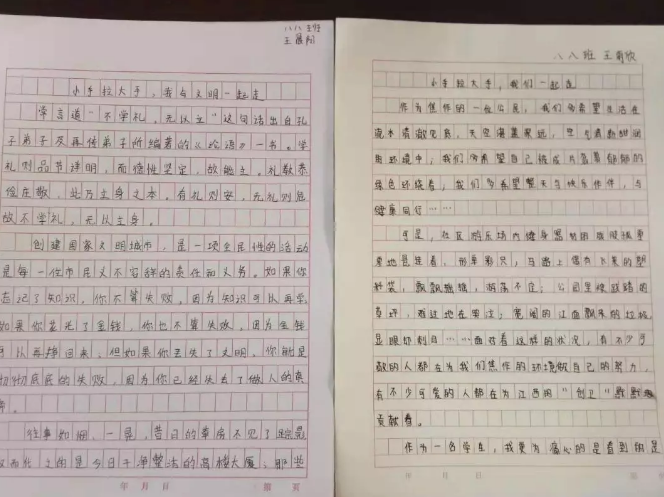 八八班
王晨阳
小手拉大手，我与文明一起走
常言道“不学礼，无以立”这句话出自孔
子弟子及再传弟子所编著的《论语》一书。学
礼则品节详明，而德性坚定，故能立。礼敬恭
俭庄敬，此乃立身之本。有礼则安，无礼则危
故不学礼，无以立身。
创建国家文明城市，是一项全民性的活动
是每一位市民义不容辞的责任和义务。如果你
忘记了知识，你不算失败，因为知识可以再学
如果你花光了金钱，你也不算失败，因为金钱
可以再挣回来，但如果你丢失了文明，你就是
彻彻底底的失败，因为你已经失去了做人的真
往事如烟，一晃，昔日的草房不见了踪影
取而代之的是今日干净整洁的高楼大厦；那些
年 月 日 第 页
八八班 王雨欣
小手拉大手，我们一起走
作为焦作的一位公民，我们都希望生活在
流水清澈见底，天空湛蓝高远，空气清新甜润
的环境中，我们都希望自己被成片高高郁郁的
绿色环绕着，我们多希望整天与快乐作伴，与
健康同行……
可是，社区游乐场内健身器材的
地歪连着，形单影只，马路上偶有飞累的塑
料袋，飘飘摇摇，游荡不定；公园里绿油油的
草坪，有过地在哭泣；宽阔的江面飘来的垃圾
显眼切刺目……面对着这样的状况，有不少可
敬的人都在为我们焦作的环境做自己的努力，
有不少可爱的人都在为江西的“创卫”默默地
贡献着。
作为一名学生，我更为痛心的是看到的是
年 月 日 第